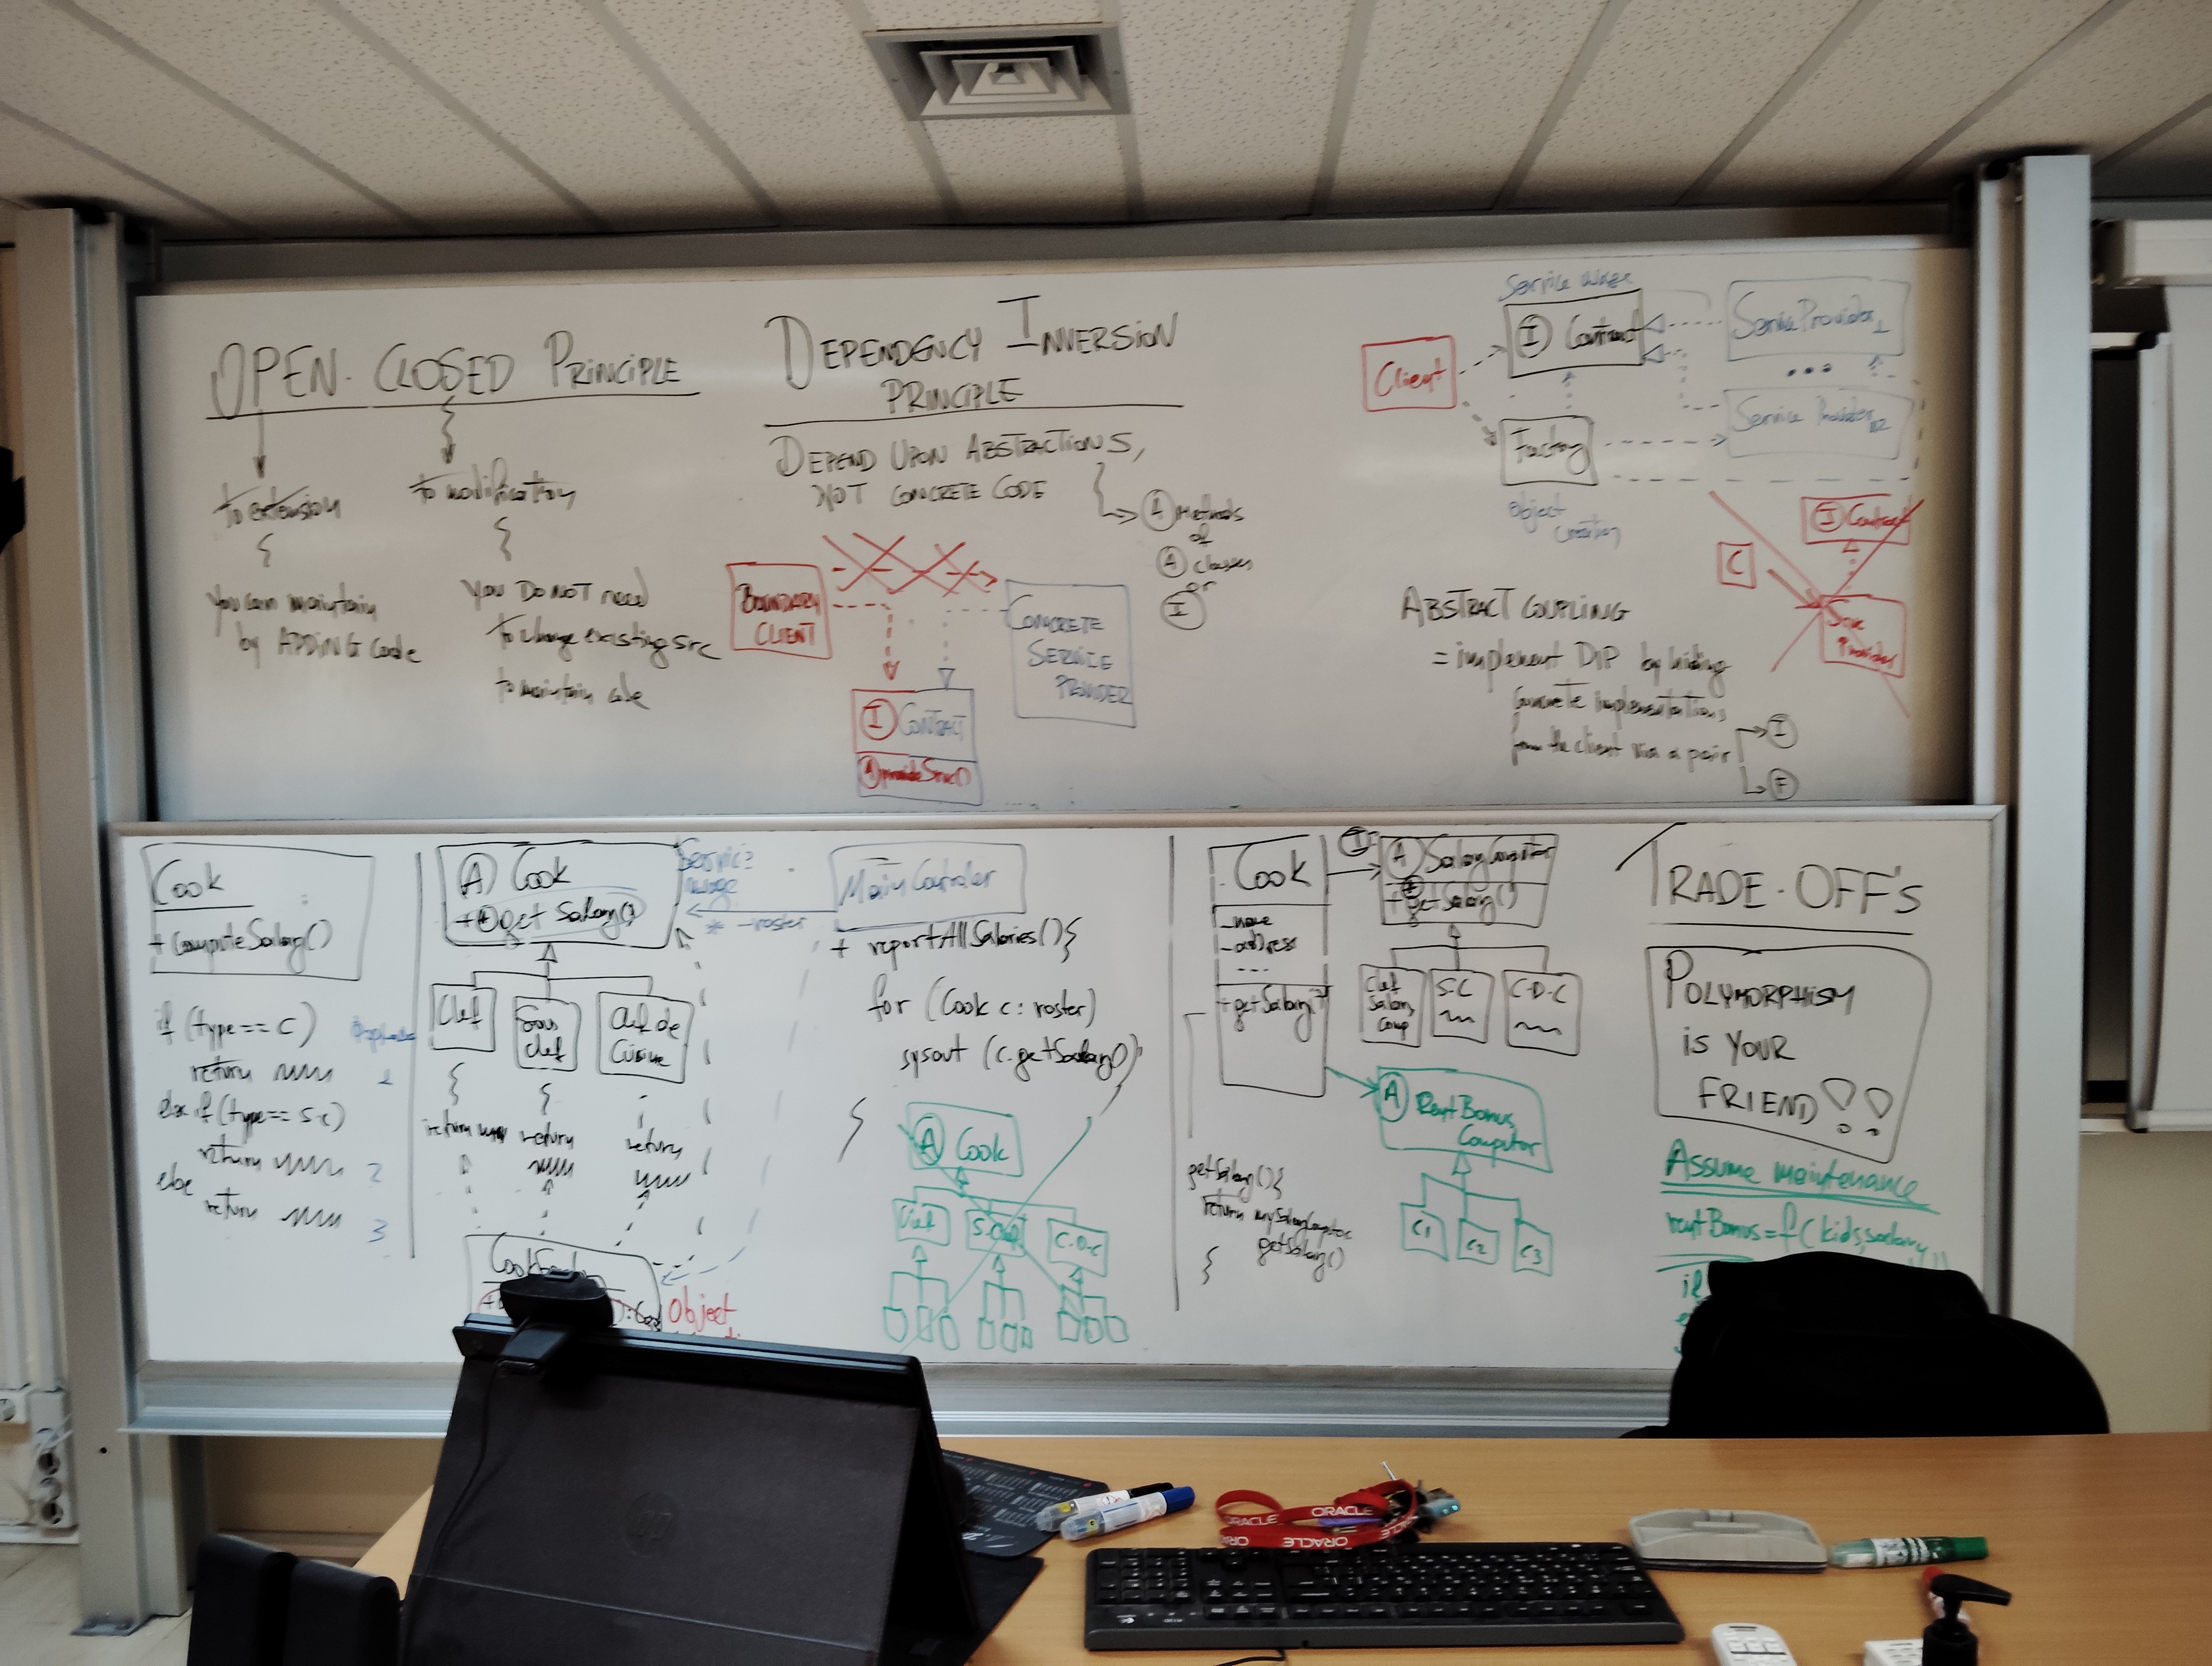 OPEN-CLOSED PRINCIPLE
to extension
to modification
you can maintain
by ADDING code
you DO NOT need
to change existing src
to maintain code
DEPENDENCY INVERSION
PRINCIPLE
DEPEND UPON ABSTRACTIONS,
NOT CONCRETE CODE
A Methods
of
A classes
or
I
BOUNDARY
CLIENT
CONCRETE
SERVICE
PROVIDER
I CONTRACT
provideSrvc()
Service usage
Client
I Contract
Service Provider 1
...
Service Provider
Factory
object
creation
C
I Contract
Provider
ABSTRACT COUPLING
= implement DIP by hiding
concrete implementations
from the client via a pair
I
F
Cook
+ computeSalary()
if (type == C)
return
1
else if (type == S-C)
return
2
else
return
3
A Cook
+ getSalary()
Chef
Sous
chef
Chef de
Cuisine
return
return
return
Object
Service
usage
* -roster
Main Controller
+ reportAllSalaries(){
for (Cook c: roster)
sysout (c.getSalary())
}
A Cook
Chef
S.Chef
C-D-C
Cook
- name
- address
...
+ getSalary()
I
A SalaryComputor
+ getSalary()
Chef
Salary
Comp
S-C
C-D-C
A RentBonus
Computor
C1
C2
C3
getSalary(){
return mySalaryComputor.
getSalary()
}
TRADE-OFF'S
POLYMORPHISM
iS YOUR
FRIEND!!
Assume maintenance
rentBonus = f(kids, salary,
if
ORACLE
ORACLE
ORACLE
ORACLE
hp